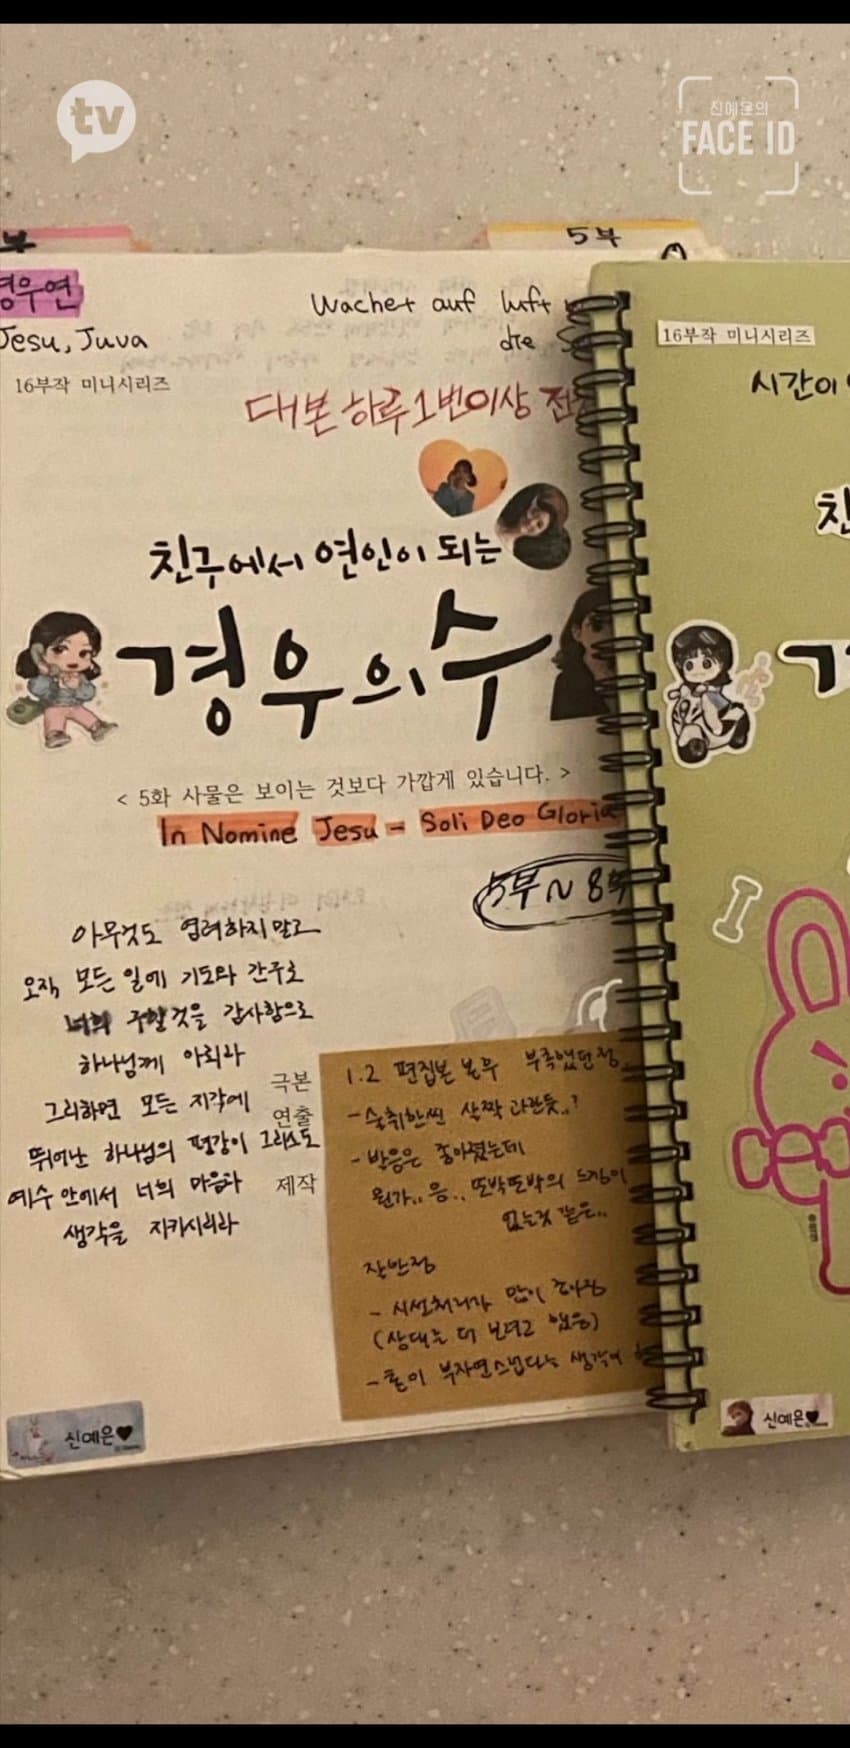 tv
신예은의
FACE ID
5부
경우연
Jesu, Juva
Wachet auf ruft
die
16부작 미니시리즈
대본 하루 1번이상
친구에서 연인이 되는
경우의 수
< 5화 사물은 보이는 것보다 가깝게 있습니다. >
In Nomine Jesu - Soli Deo Gloria
5부 ~ 8부
아무것도 염려하지 말고
오직 모든 일에 기도와 간구로
너희 구할 것을 감사함으로
하나님께 아뢰라
그리하면 모든 지각에
뛰어난 하나님의 평강이 그리스도
예수 안에서 너희 마음과
생각을 지키시리라
극본
연출
제작
1.2 편집본 본 후 부족했던점
- 술취한씬 살짝 과한듯..?
- 반응은 좋아졌는데
뭔가.. 음.. 또박또박의 느낌이
없는것 같은..
잘한점
- 시선처리가 많이 좋아짐
(상대를 더 보려고 했음)
- 톤이 부자연스럽다는 생각이
신예은♥
16부작 미니시리즈
시간이
친
신예은♥